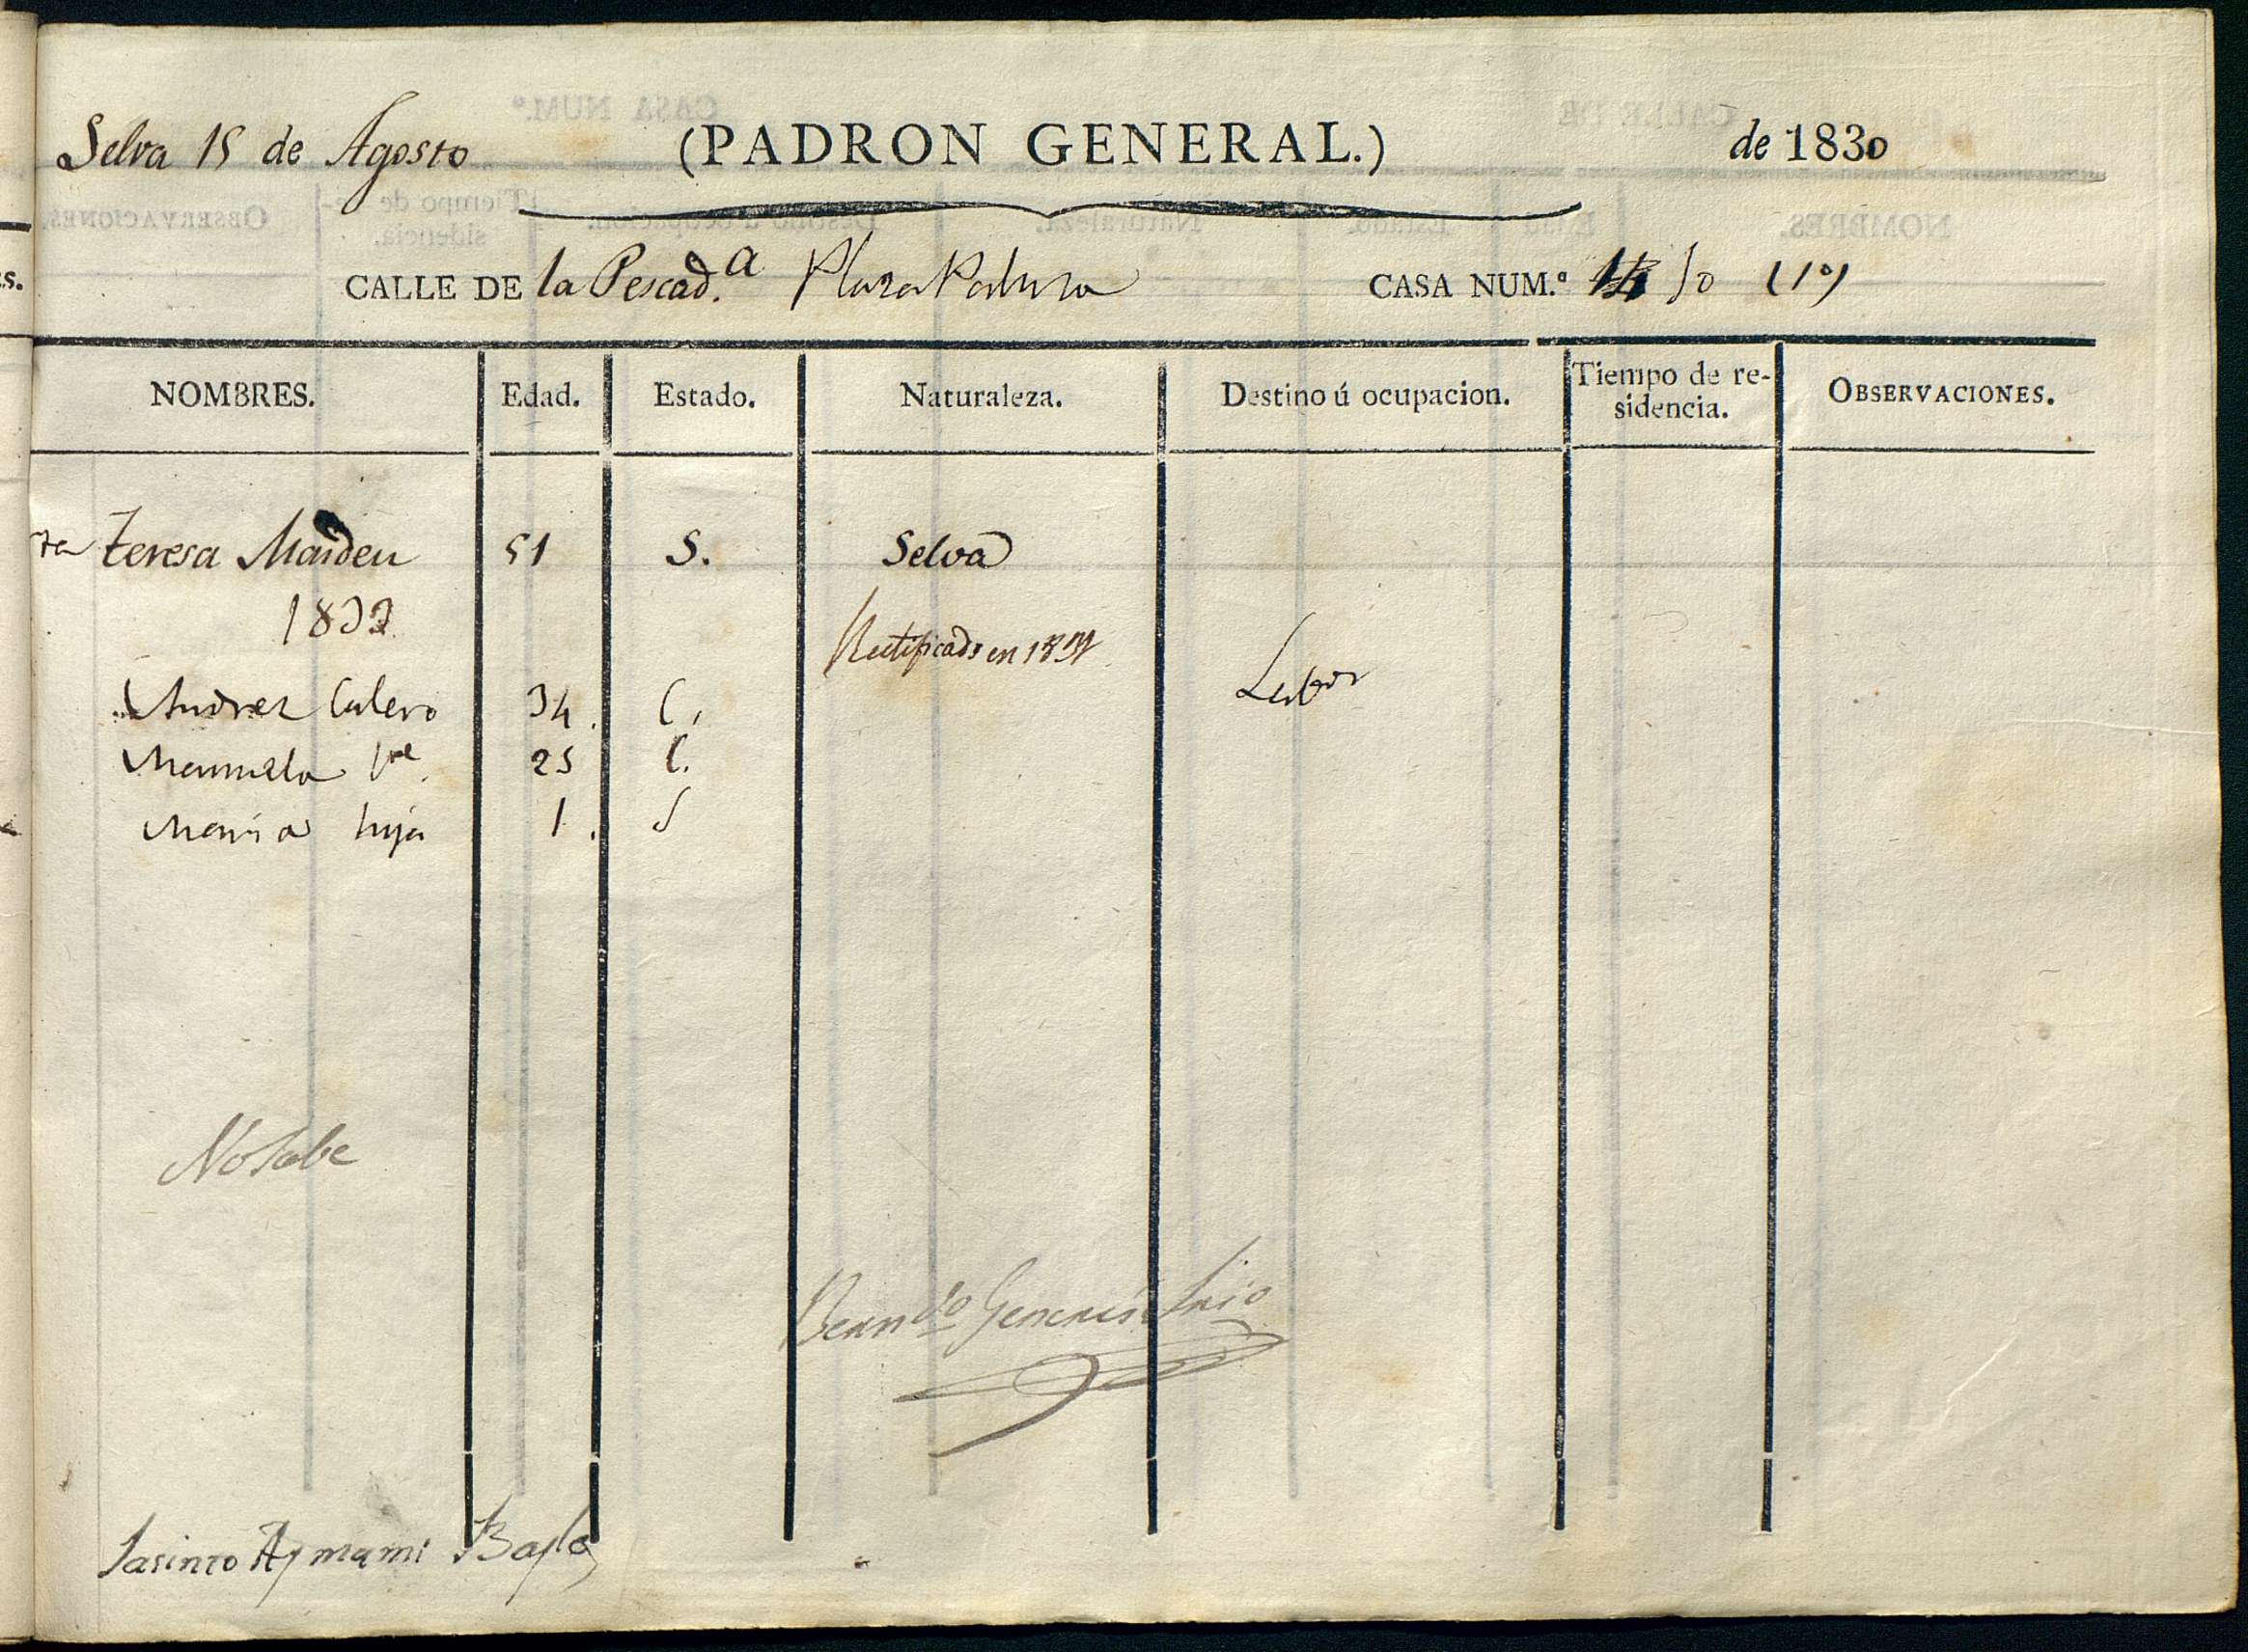 Selva 15 de Agosto (PADRON GENERAL.) de 1830
CALLE DE la Pescad.a Plaza CASA NUM.º 10 (19)
NOMBRES. Edad. Estado. Naturaleza. Destino ú ocupacion. Tiempo de re-sidencia. OBSERVACIONES.
Teresa Masdeu 51 S. Selva
1832
Rectificado en
Andrez Calero 34. C. Labor
Manuela 25 C.
Maria hija 1. S
No Sabe
Berndo Generés Srio
Jasinto Aymami Bayle